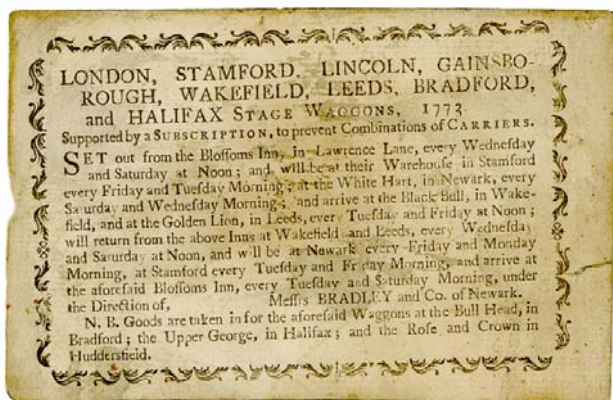 LONDON, STAMFORD. LINCOLN, GAINSBO-
ROUGH, WAKEFIELD, LEEDS, BRADFORD,
and HALIFAX STAGE WAGGONS, 1773
Supported by a SUBSCRIPTION, to prevent Combinations of CARRIERS.
SET out from the Bloſſoms Inn, in Lawrence Lane, every Wedneſday
and Saturday at Noon; and will be at their Warehouſe in Stamford
every Friday and Tueſday Morning; at the White Hart, in Newark, every
Saturday and Wedneſday Morning; and arrive at the Black Bull, in Wake-
field, and at the Golden Lion, in Leeds, every Tueſday and Friday at Noon;
will return from the above Inns at Wakefield and Leeds, every Wedneſday
and Saturday at Noon, and will be at Newark every Friday and Monday
Morning, at Stamford every Tueſday and Friday Morning, and arrive at
the aforeſaid Bloſſoms Inn, every Tueſday and Saturday Morning, under
the Direction of, Meſſrs BRADLEY and Co. of Newark.
N. B. Goods are taken in for the aforeſaid Waggons at the Bull Head, in
Bradford; the Upper George, in Halifax; and the Roſe and Crown in
Huddersfield.